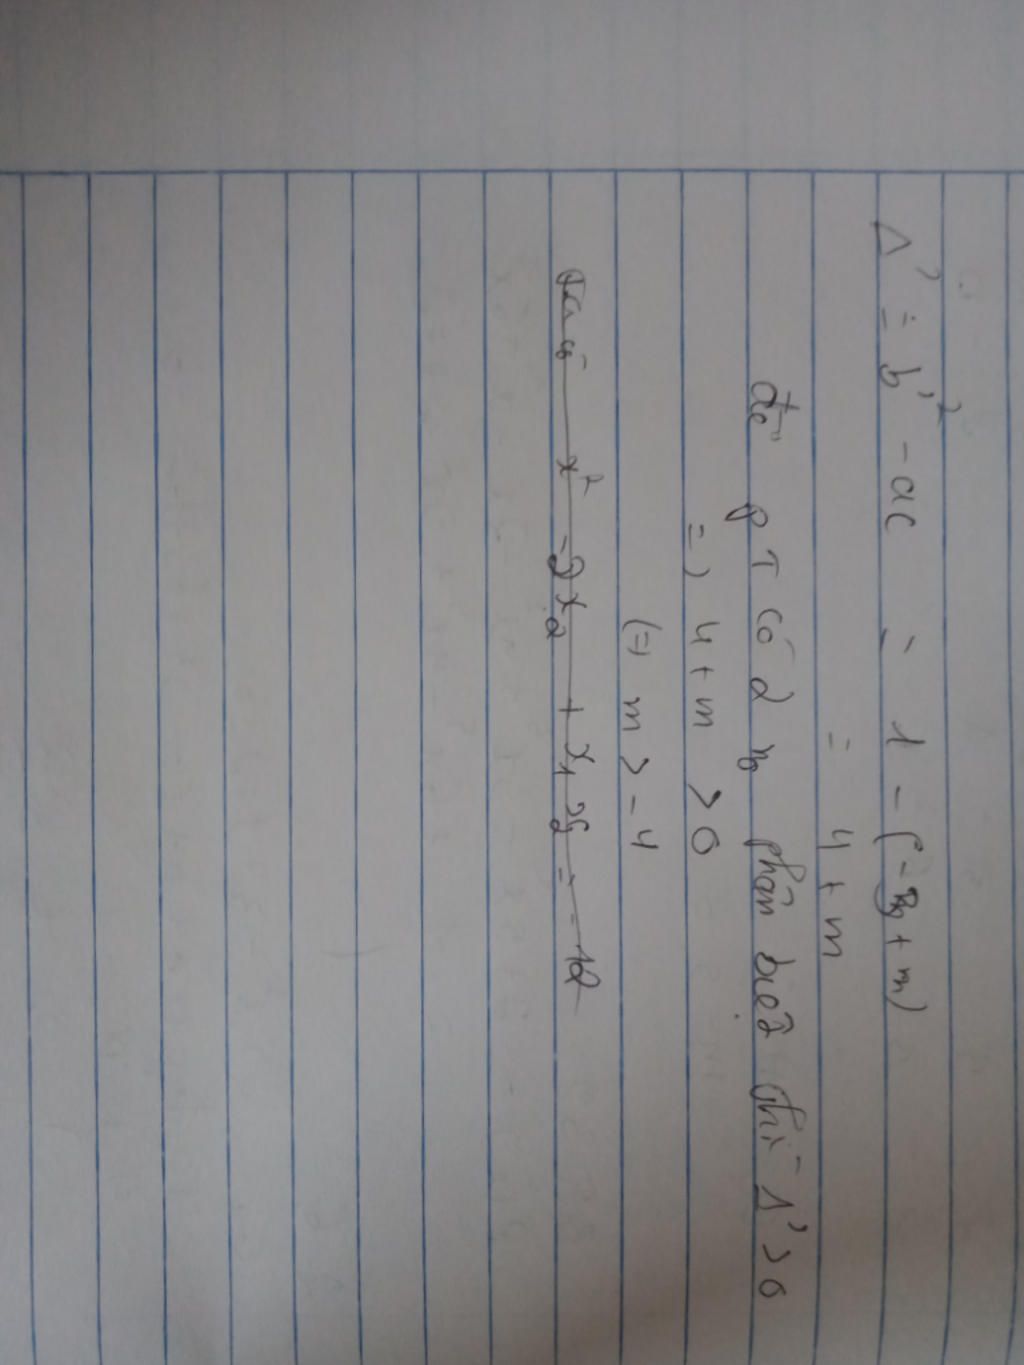 Δ' = b'² - ac = 1 - (-3 + m)
= 4 + m
để pT có 2 n₀ phân biệt thì Δ' > 0
=) 4 + m > 0
(=) m > -4
Ta có x² - 2x₂ + x₁x₂ = -12